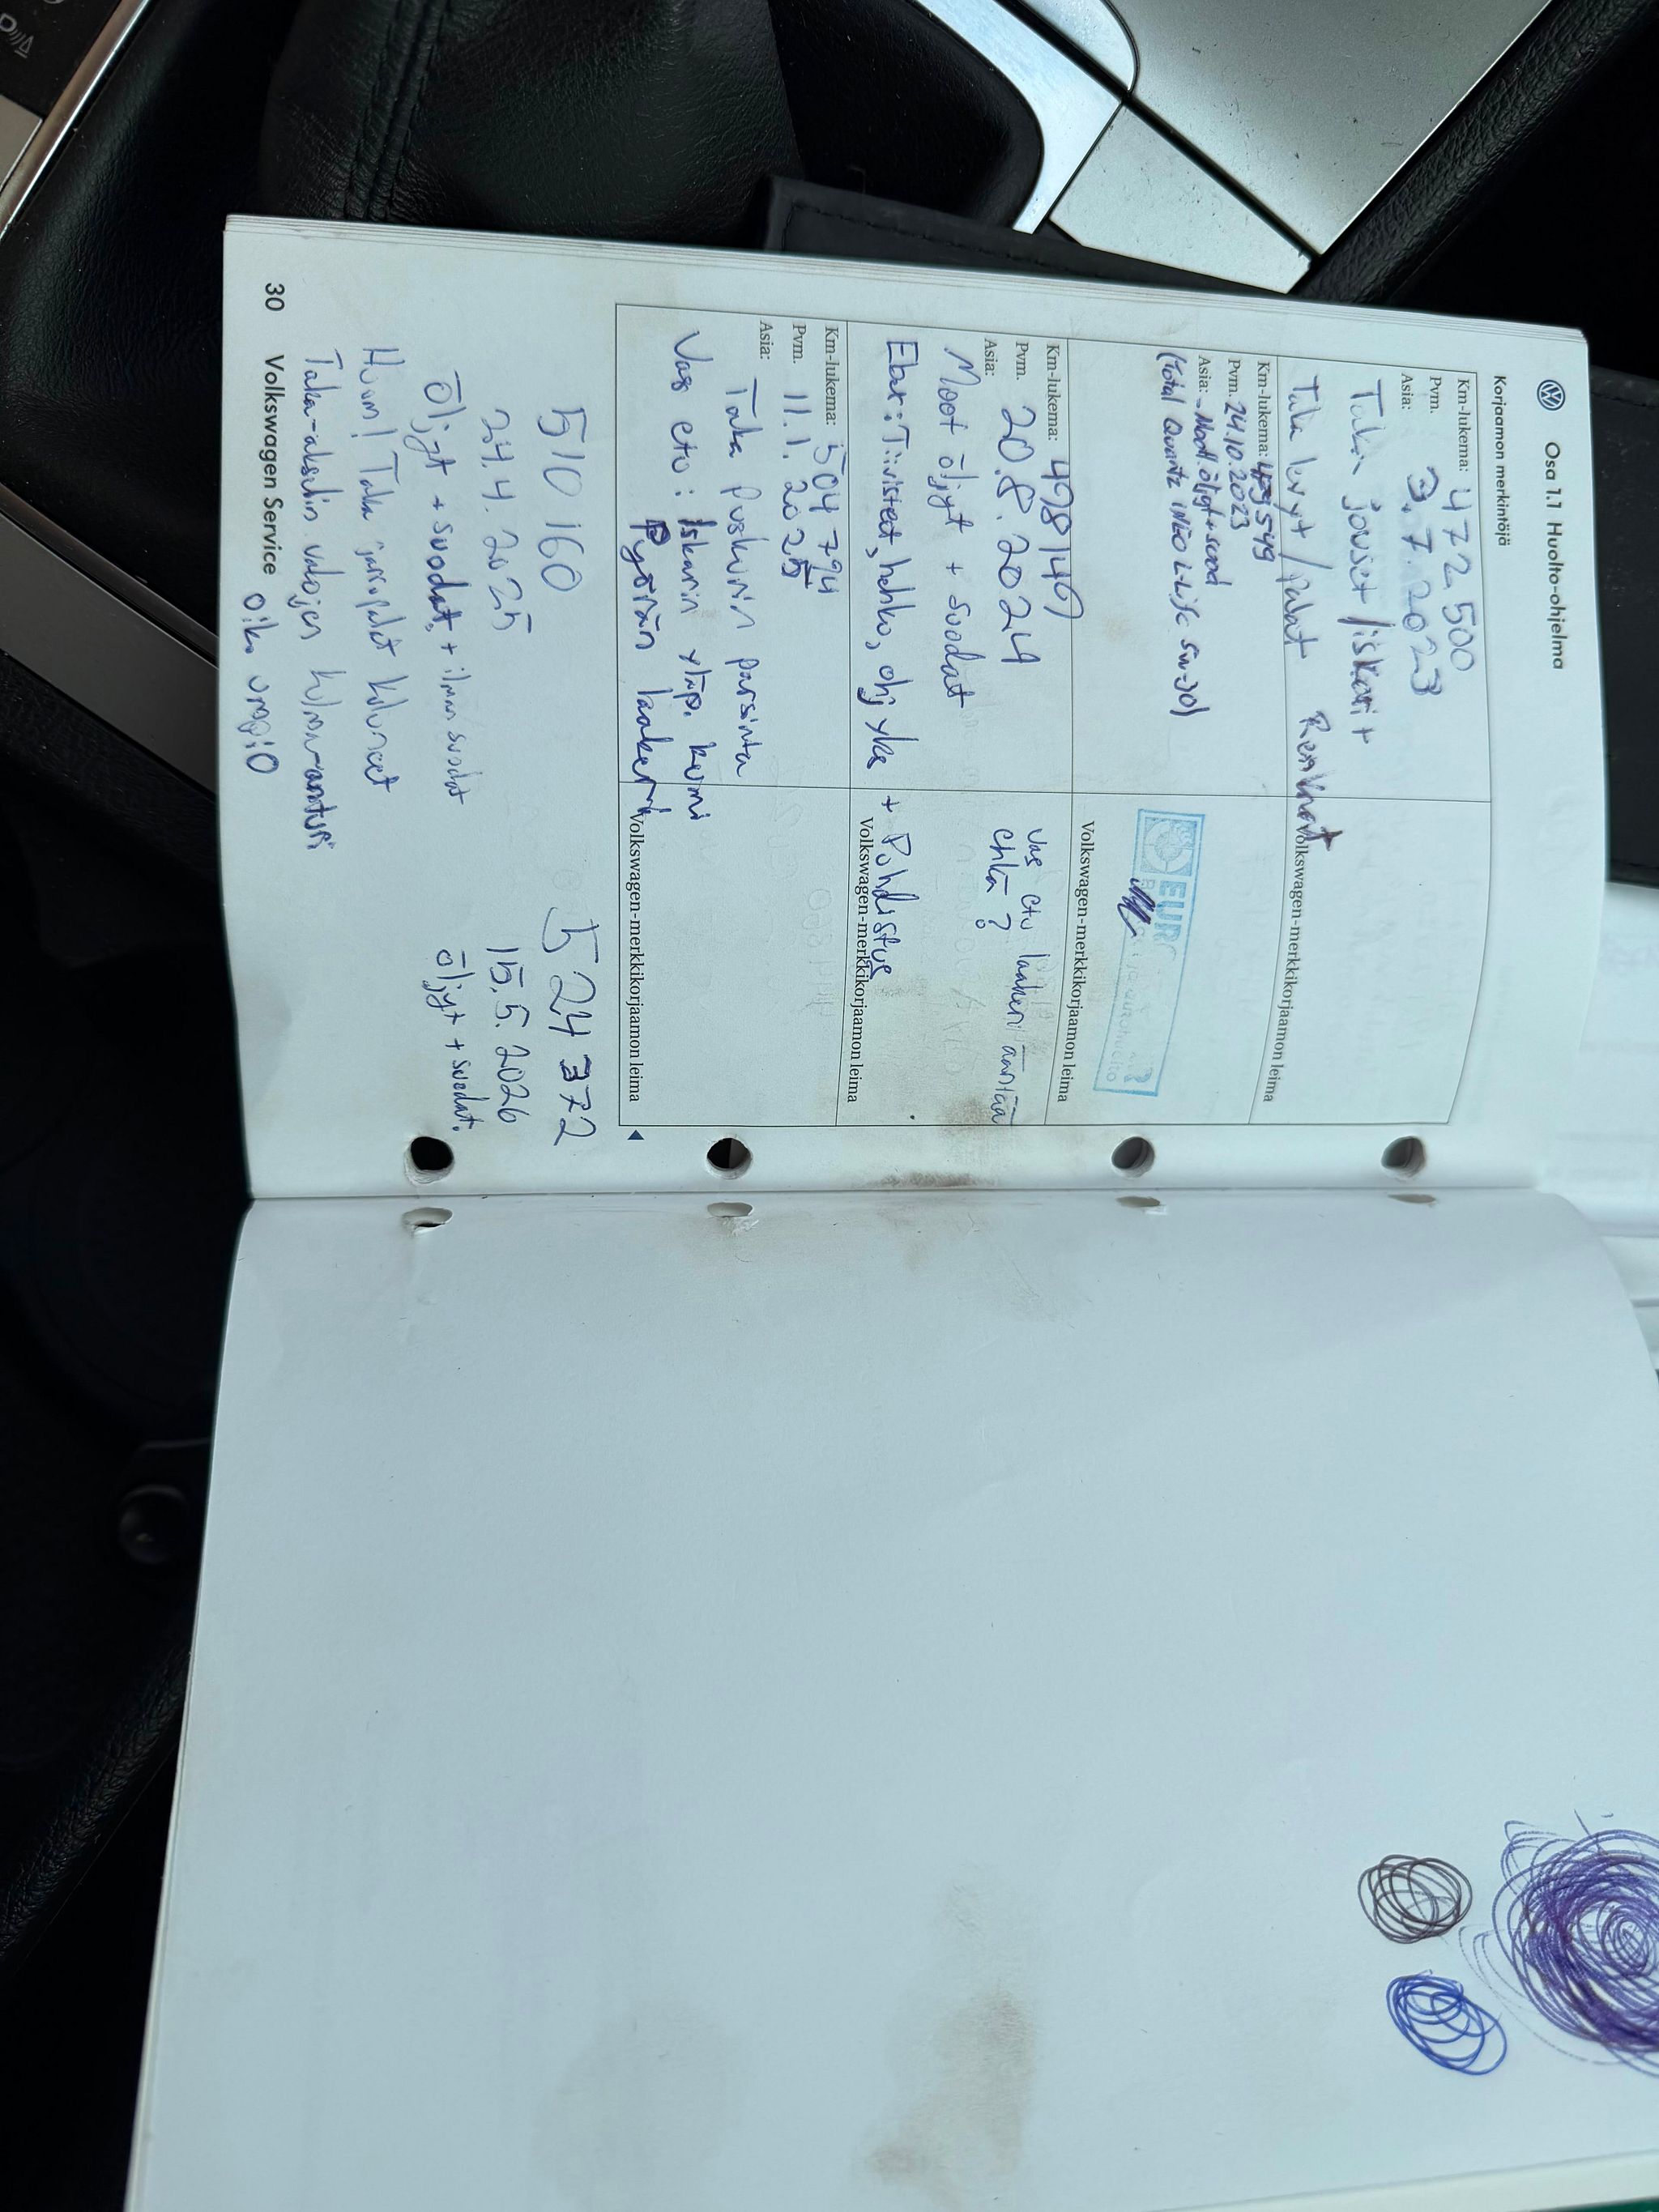 Osa 1.1 Huolto-ohjelma
Korjaamon merkintöjä
Km-lukema: 472 500
Pvm. 3.7.2023
Asia:
Taka jouset / iskari +
Taka levyt / palat Renknat
Volkswagen-merkkikorjaamon leima
Km-lukema: 549
Pvm. 24.10.2023
Asia: - Moot. öljyt + suod
(Total Quartz INEO L-Life 5w-30)
EUR
Volkswagen-merkkikorjaamon leima
Km-lukema: 498 149
Pvm. 20.8.2024
Asia:
Moot öljyt + suodat
Vas etu laakeri ääntää
ehkä?
Eber: Tiivisteet, hehku, ohj yks + Puhdistus
Volkswagen-merkkikorjaamon leima
Km-lukema: 504 794
Pvm. 11.1.2025
Asia:
Taka puskurin parsinta
Vas etu: Iskarin yläp. kumi
Pyörän laakeri
Volkswagen-merkkikorjaamon leima
510 160
24.4.2025
öljyt + suodat, + ilman suodat
Huom! Taka jarrupalat kuluneet
Taka-akselin valojen kulman-anturi
oiko vropio
524 372
15.5.2026
öljyt + suodat.
30 Volkswagen Service